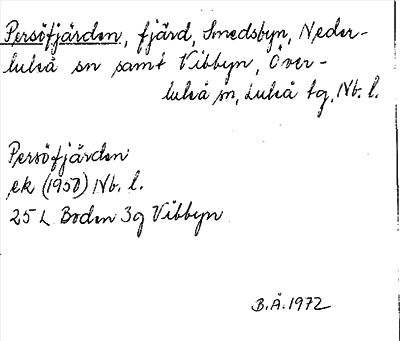 Persöfjärden, fjärd, Smedsbyn, Neder-
luleå sn samt Vibbyn, Över-
luleå sn, Luleå tg, Nb. l.
Persöfjärden
ek (1950) Nb. l.
25 L Boden 3g Vibbyn
B.Å. 1972